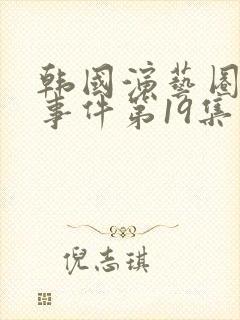 韩國演藝圈
事件第19集
倪志琪